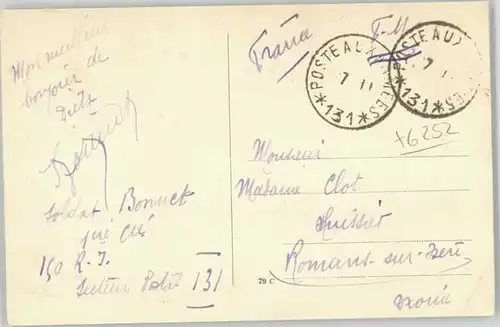 Mon meilleur
bonjour de
Diez
Soldat Bonnet
1ère Cie
150 R.I.
Secteur Postal 131
France
F.M.
POSTE AUX ARMÉES
7 11
*131*
POSTE AUX ARMÉES
7 1
*131*
+6252
Monsieur
Madame Clot
Huissier
Romans-sur-Isère
Drome
79 C